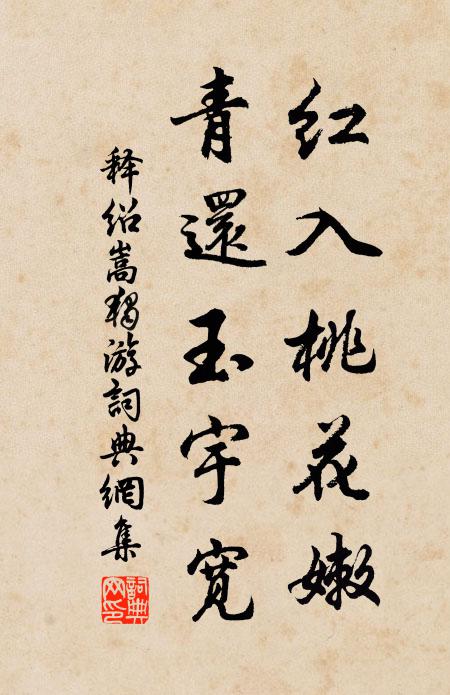 红入桃花嫩
青還玉宇寬
释绍嵩獨游詞典網集
詞典网印